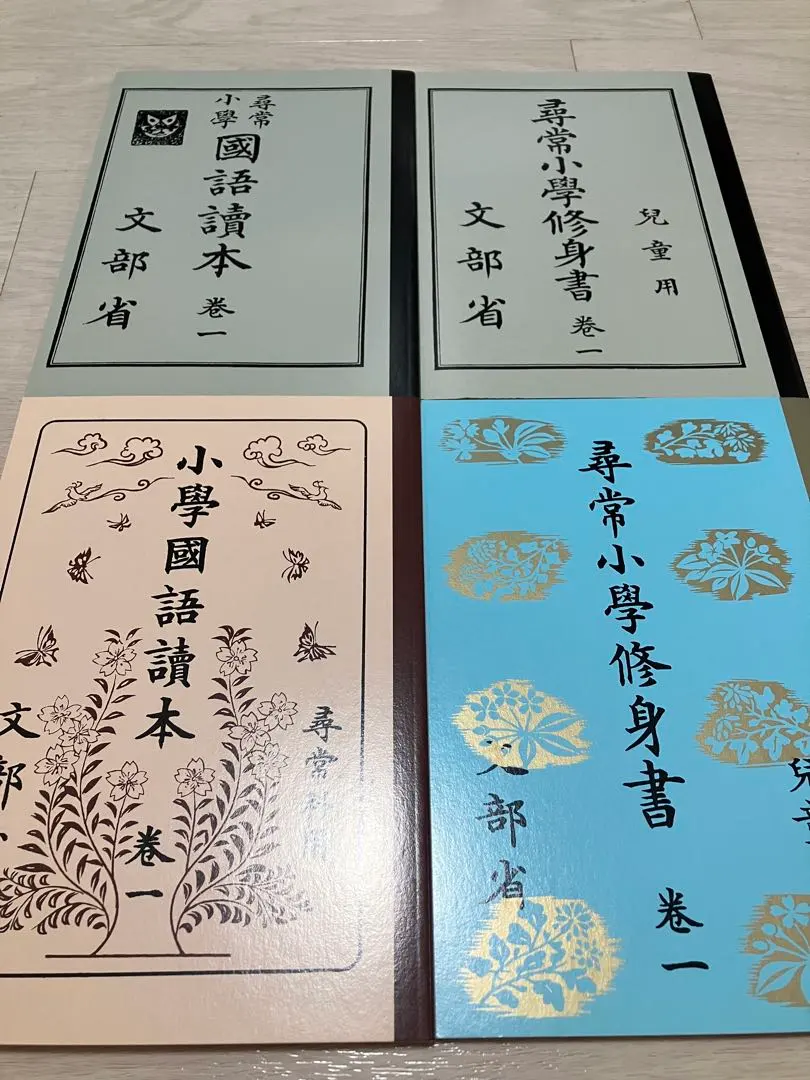 尋常
小學
國語讀本 卷一
文部省
兒童用
尋常小學修身書 卷一
文部省
小學國語讀本 卷一
尋常科用
文部
尋常小學修身書 卷一
文部省
兒童